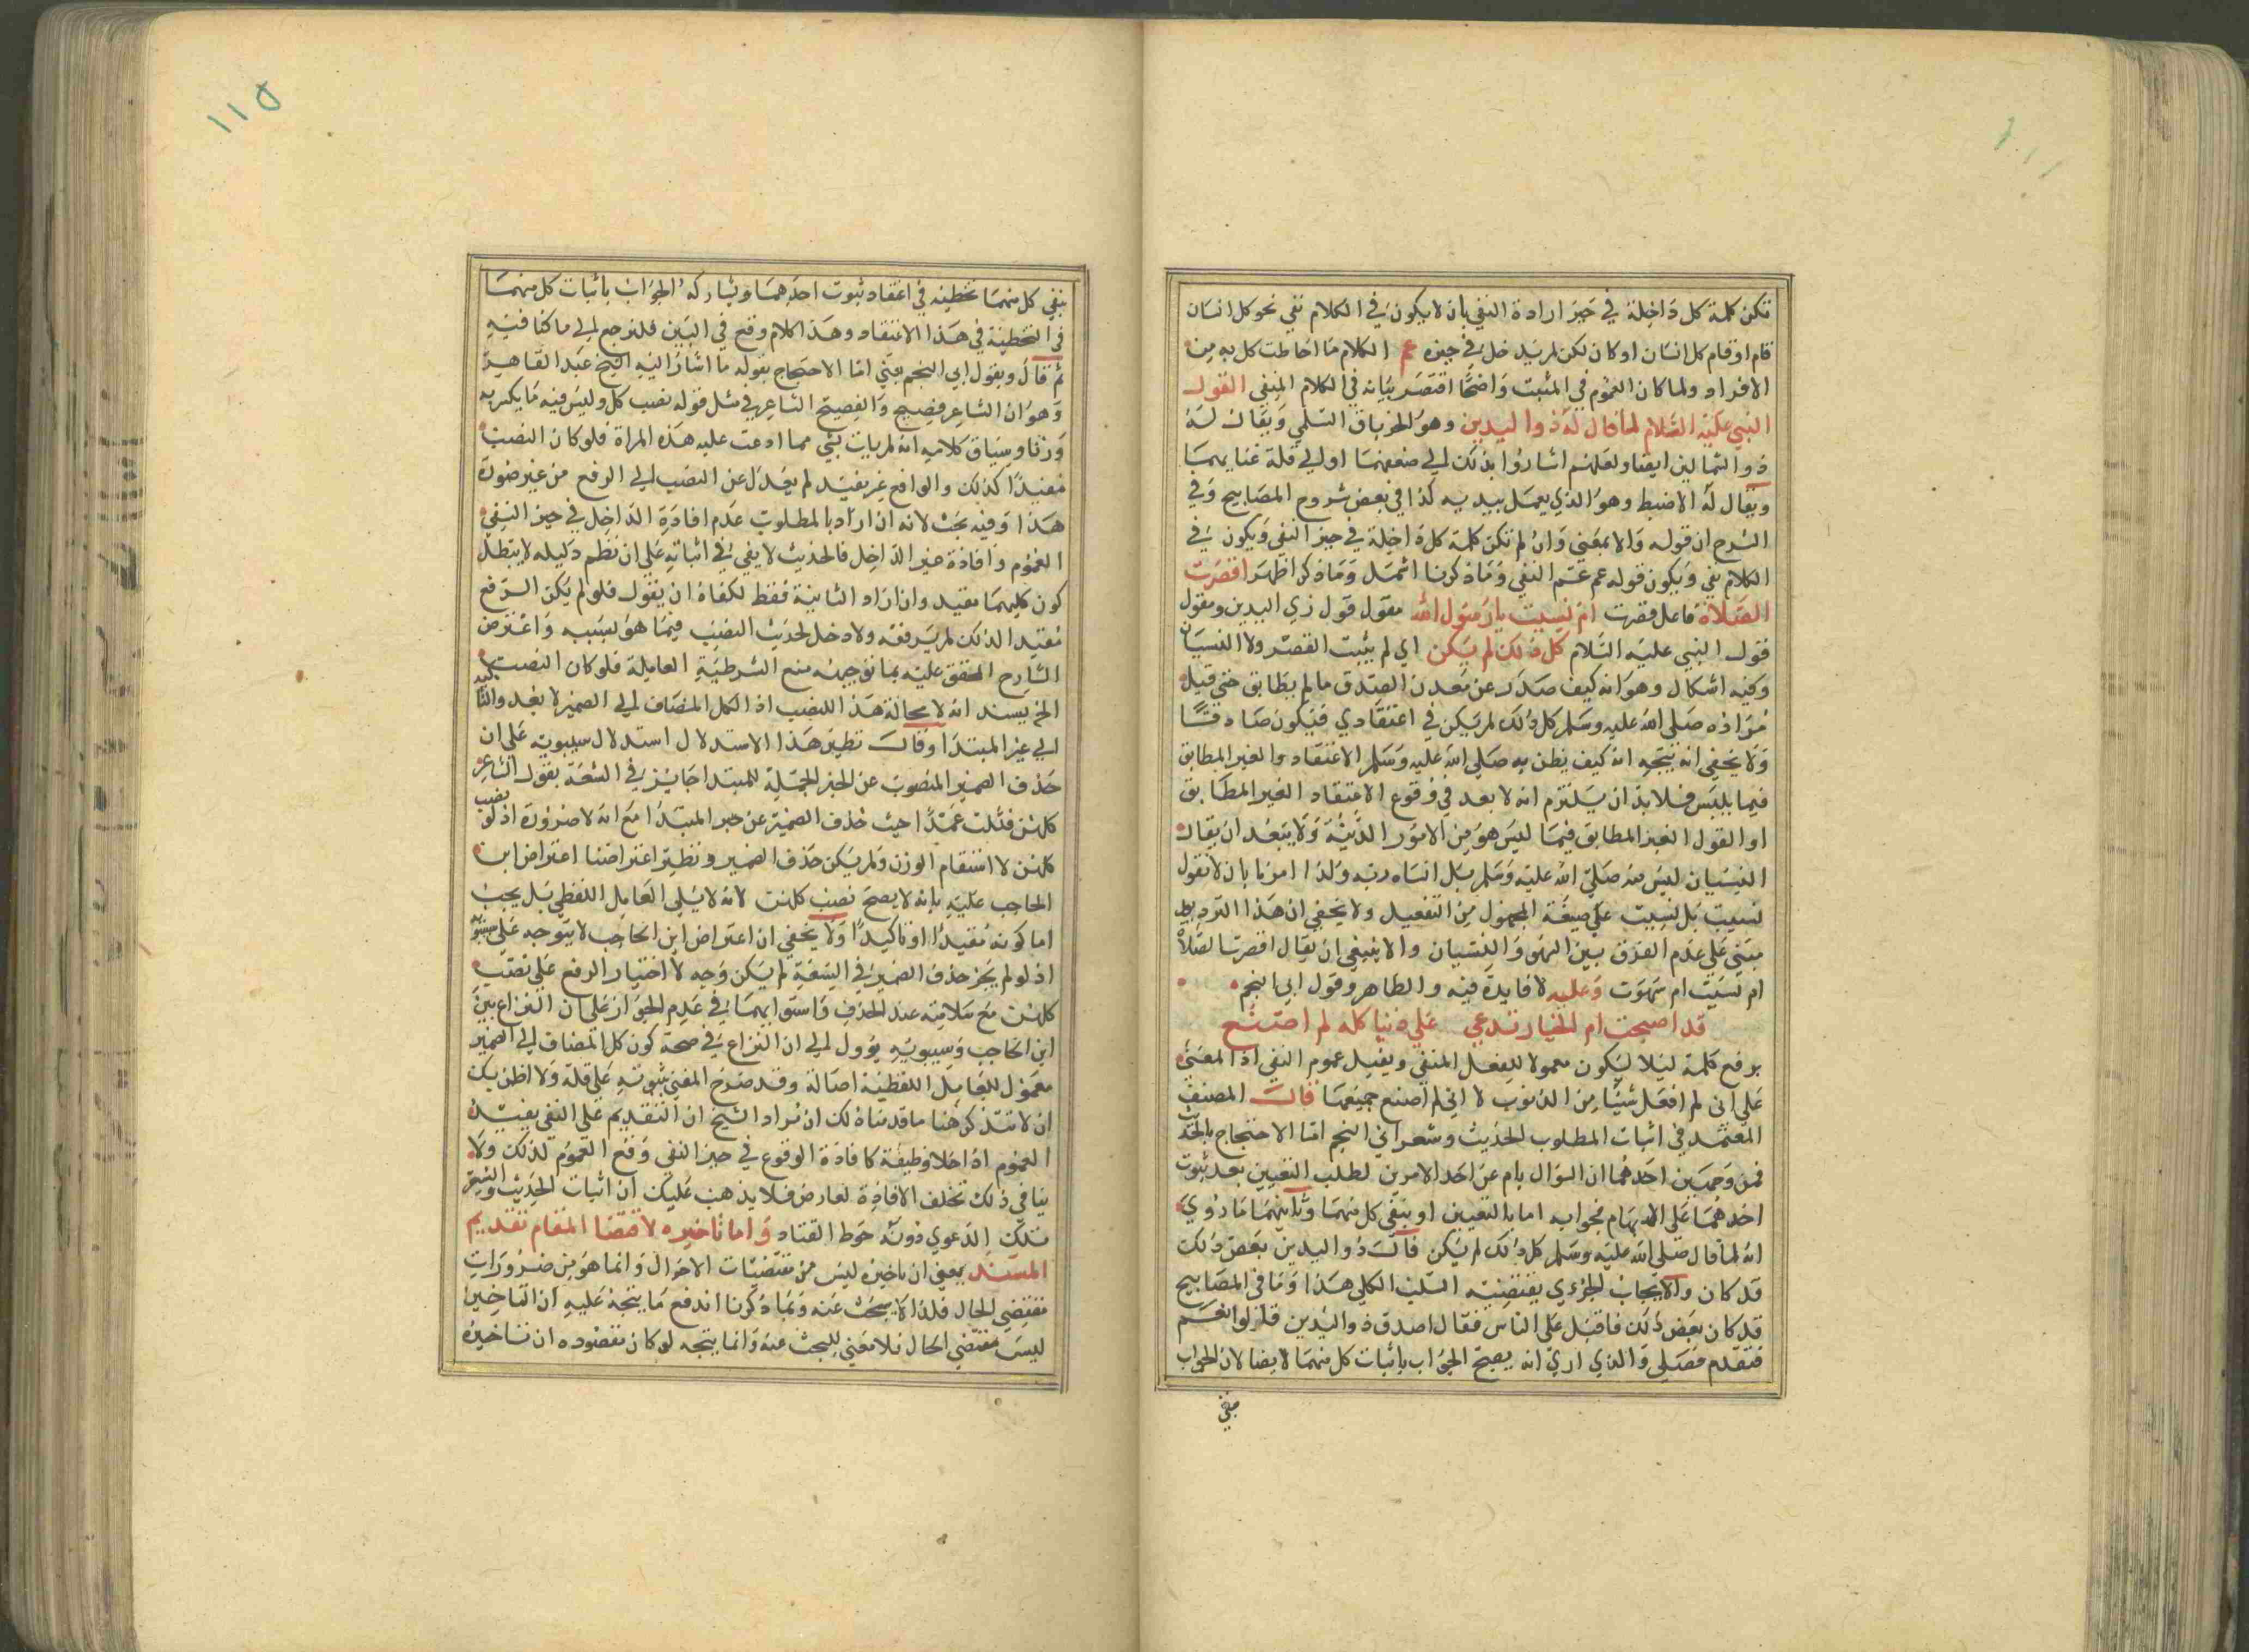 تكن كلمة كل داخلة في حيز ارادة النفي بان لا يكون في الكلام نفي نحو كل انسان
قام او قام كل انسان او كان لكن لم يدخل في حيزه عم الكلام ما احاطت كل به من
الافراد ولما كان العموم في المثبت واضحا اقتصر بيانه في الكلام المنفي القول
النبي عليه السلام لما قال له ذو اليدين وهو الخرباق السلمي ويقال له
ذو الشمالين ايضا ولعلهم اشاروا بذلك الي ضعفهما او الي قلة غنايهما
ويقال له الاضبط وهو الذي يعمل بيديه كذا في بعض شروح المصابيح وفي
الشرح ان قوله والا بمعني وان لم تكن كلمة كل داخلة في حيز النفي ويكون في
الكلام نفي ويكون قوله عم عم النفي وما ذكرنا اشمل وما ذكر اظهر اقصرت
الصلاة فاعل قصرت ام نسيت يا رسول الله مقول قول ذي اليدين ومقول
قول النبي عليه السلام كل ذلك لم يكن اي لم يثبت القصر ولا النسيان
وفيه اشكال وهو انه كيف صدر عن معدن الصدق ما لم يطابق حتي قيل
مراده صلي الله عليه وسلم كل ذلك لم يكن في اعتقادي فيكون صادقا
ولا يخفي انه يتجه انه كيف يظن به صلي الله عليه وسلم الاعتقاد والغير المطابق
فيما يلبس فلا بد ان يلتزم انه لا بعد في وقوع الاعتقاد الغير المطابق
او القول الغير المطابق فيما ليس هو من الامور الدينية ولا يبعد ان يقال
النسيان ليس منه صلي الله عليه وسلم بل انساه ربه ولذا امرنا بان لا نقول
نسيت بل نسيت علي صيغة المجهول من التفعيل ولا يخفي ان هذا الترديد
مبني علي عدم الفرق بين السهو والنسيان والا ينبغي ان يقال اقصرت الصلاة
ام نسيت ام سهوت وعليه لا فايدة فيه والظاهر وقول ابي النجم
قد اصبحت ام الخيار تدعي علي ذنبا كله لم اصنع
برفع كلمة ليلا يكون معمولا للفعل المنفي ويفيد عموم النفي اذ المعني
علي اني لم افعل شيئا من الذنوب لا اني لم اصنع جميعها قال المصنف
المعتمد في اثبات المطلوب الحديث وشعر ابي النجم اما الاحتجاج بالحديث
فمن وجهين احدهما ان السؤال بام عن احد الامرين لطلب التعيين بعد ثبوت
احدهما علي الابهام فجوابه اما بالتعيين او بنفي كل منهما وثانيهما ما روي
انه لما قال صلي الله عليه وسلم كل ذلك لم يكن قال ذو اليدين بعض ذلك
قد كان والايجاب الجزءي يقتضيه السلب الكلي هذا وما في المصابيح
قد كان بعض ذلك فاقبل علي الناس فقال اصدق ذو اليدين قالوا نعم
فتقدم فصلي والذي اري انه يصح الجواب باثبات كل منهما لايضا لان الجواب
بنفي
١١٥
بنفي كل منهما تخطيه في اعتقاد ثبوت احدهما ويشاركه الجواب باثبات كل منهما
في التخطية في هذا الاعتقاد وهذا كلام وقع في البين فلنرجع الي ما كنا فيه
ثم قال وبقول ابي النجم يعني اما الاحتجاج بقوله ما اشار اليه الشيخ عبد القاهر
وهو ان الشاعر فصيح والفصيح الشاعر في مثل قوله نصب كل وليس فيه ما يكسر به
وزنا وسياق كلامه انه لم يات بشي مما ادعت عليه هذه المراة فلو كان النصب
مفيدا كذلك والواقع غير مفيد لم يعدل عن النصب الي الرفع من غير ضرورة
هذا وفيه بحث لانه ان اراد بالمطلوب عدم افادة الداخل في حيز النفي
العموم وافادة غير الداخل فالحديث لا يفي في اثباته علي ان نظم دليله لا يبطل
كون كليهما مفيد وان اراد الثانية فقط لكفاه ان يقول فلو لم يكن الرفع
مفيد الذلك لم يرفعه ولا دخل لحديث النصب فيما هو بسببه واعترض
الشارح المحقق عليه بما توجيهه منع الشرطية العاملة فلو كان النصب
الخ بسند انه لا محالة هذا النصب اذ الكل المضاف الي الضمير لا يفد والتاكيد
الي غير المبتدا وقال نظير هذا الاستدلال استدلال سيبويه علي ان
حذف الضمير المنصوب عن الخبر الجملة للمبتدا جايز في السعة بقول الشاعر
كلهن قتلت عمدا حيث حذف الضمير عن خبر المبتدا مع انه لا ضرورة اذ لو نصب
كلهن لا استقام الوزن ولم يكن حذف الضمير ونظير اعتراضنا اعتراض ابن
الحاجب عليه بانه لا يصح نصب كلهن لانه لا يلي العامل اللفظي بل يجب
اما كونه مفيدا او تاكيدا ولا يخفي ان اعتراض ابن الحاجب لا يتوجه علي سيبويه
اذ لو لم يجز حذف الضمير في السعة لم يكن وجه لاختيار الرفع علي نصب
كلهن مع سلامته عند الحذف واستوايهما في عدم الجواز علي ان النزاع بين
ابن الحاجب وسيبويه يوول الي ان النزاع في صحة كون كل المضاف الي الضمير
معمول للعامل اللفظية اصالة وقد صرح المغني بثبوته علي قلة ولا اظن بك
ان لا تتذكر هنا ما قدمناه لك ان مراد الشيخ ان التقديم علي النفي يفيد
العموم اذا خلا وظيفة كافادة الوقوع في حيز النفي وقع العموم لذلك ولا
ينافي ذلك تخلف الافادة لعارض فلا يذهب عليك ان اثبات الحديث والشعر
تلك الدعوي دونه خرط القتاد واما تاخيره لاقتضا المقام تقديم
المسند يعني ان تاخيره ليس من مقتضيات الاحوال وانما هو من ضرورات
مقتضي الحال فلذا لا يبحث عنه وبما ذكرنا اندفع ما يتجه عليه ان التاخير
ليس مقتضي الحال فلا معني للبحث عنه وانما يتجه لو كان مقصوده ان تاخيره